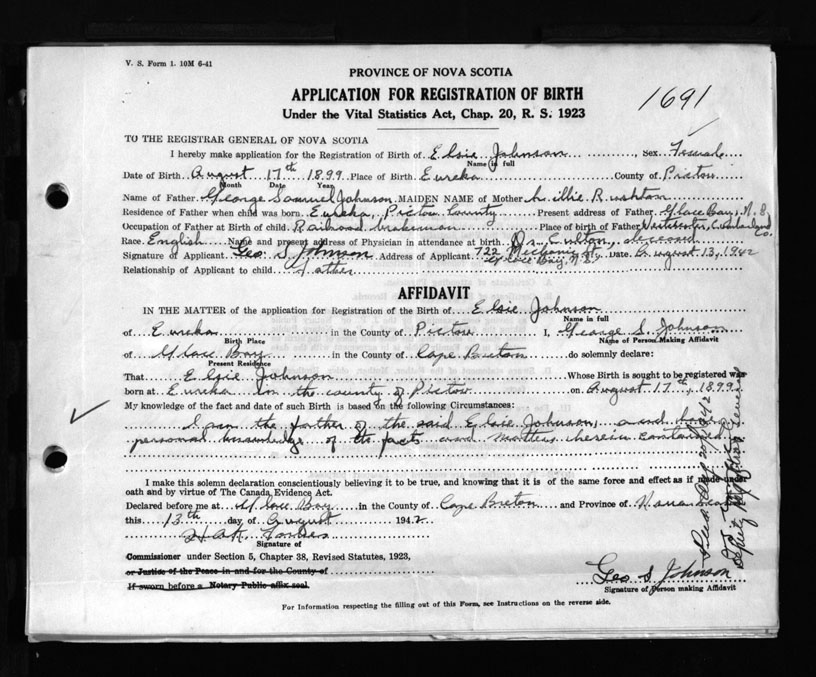 V. S. Form 1. 10M 6-41
PROVINCE OF NOVA SCOTIA
APPLICATION FOR REGISTRATION OF BIRTH
1691
Under the Vital Statistics Act, Chap. 20, R. S. 1923
TO THE REGISTRAR GENERAL OF NOVA SCOTIA
I hereby make application for the Registration of Birth of Elsie Johnson, Sex Female
Name in full
Date of Birth August 17th 1899 Place of Birth Eureka County of Pictou
Month Date Year
Name of Father George Samuel Johnson MAIDEN NAME of Mother Lillie Rushton
Residence of Father when child was born Eureka, Pictou County Present address of Father Glace Bay, N.S.
Occupation of Father at Birth of child Railroad brakeman Place of birth of Father Westchester, Cumberland Co.
Race English Name and present address of Physician in attendance at birth Dr. deceased
Signature of Applicant Geo S Johnson Address of Applicant 722 St Glace Bay, N.S. Date August 13, 1942
Relationship of Applicant to child Father
AFFIDAVIT
IN THE MATTER of the application for Registration of the Birth of Elsie Johnson
Name in full
of Eureka in the County of Pictou I, George S. Johnson
Birth Place Name of Person Making Affidavit
of Glace Bay in the County of Cape Breton do solemnly declare:
Present Residence
That Elsie Johnson Whose Birth is sought to be registered was
born at Eureka in the county of Pictou on August 17th, 1899
My knowledge of the fact and date of such Birth is based on the following Circumstances:
I am the father of the said Elsie Johnson, and have
personal knowledge of the facts and matters herein contained
I make this solemn declaration conscientiously believing it to be true, and knowing that it is of the same force and effect as if made under
oath and by virtue of The Canada Evidence Act.
Declared before me at Glace Bay in the County of Cape Breton and Province of Nova Scotia
this 13th day of August 1942
Signature of
Commissioner under Section 5, Chapter 38, Revised Statutes, 1923,
or Justice of the Peace in and for the County of
If sworn before a Notary Public affix seal.
Geo S. Johnson
Signature of Person making Affidavit
Deputy Registrar General
For Information respecting the filling out of this Form, see Instructions on the reverse side.